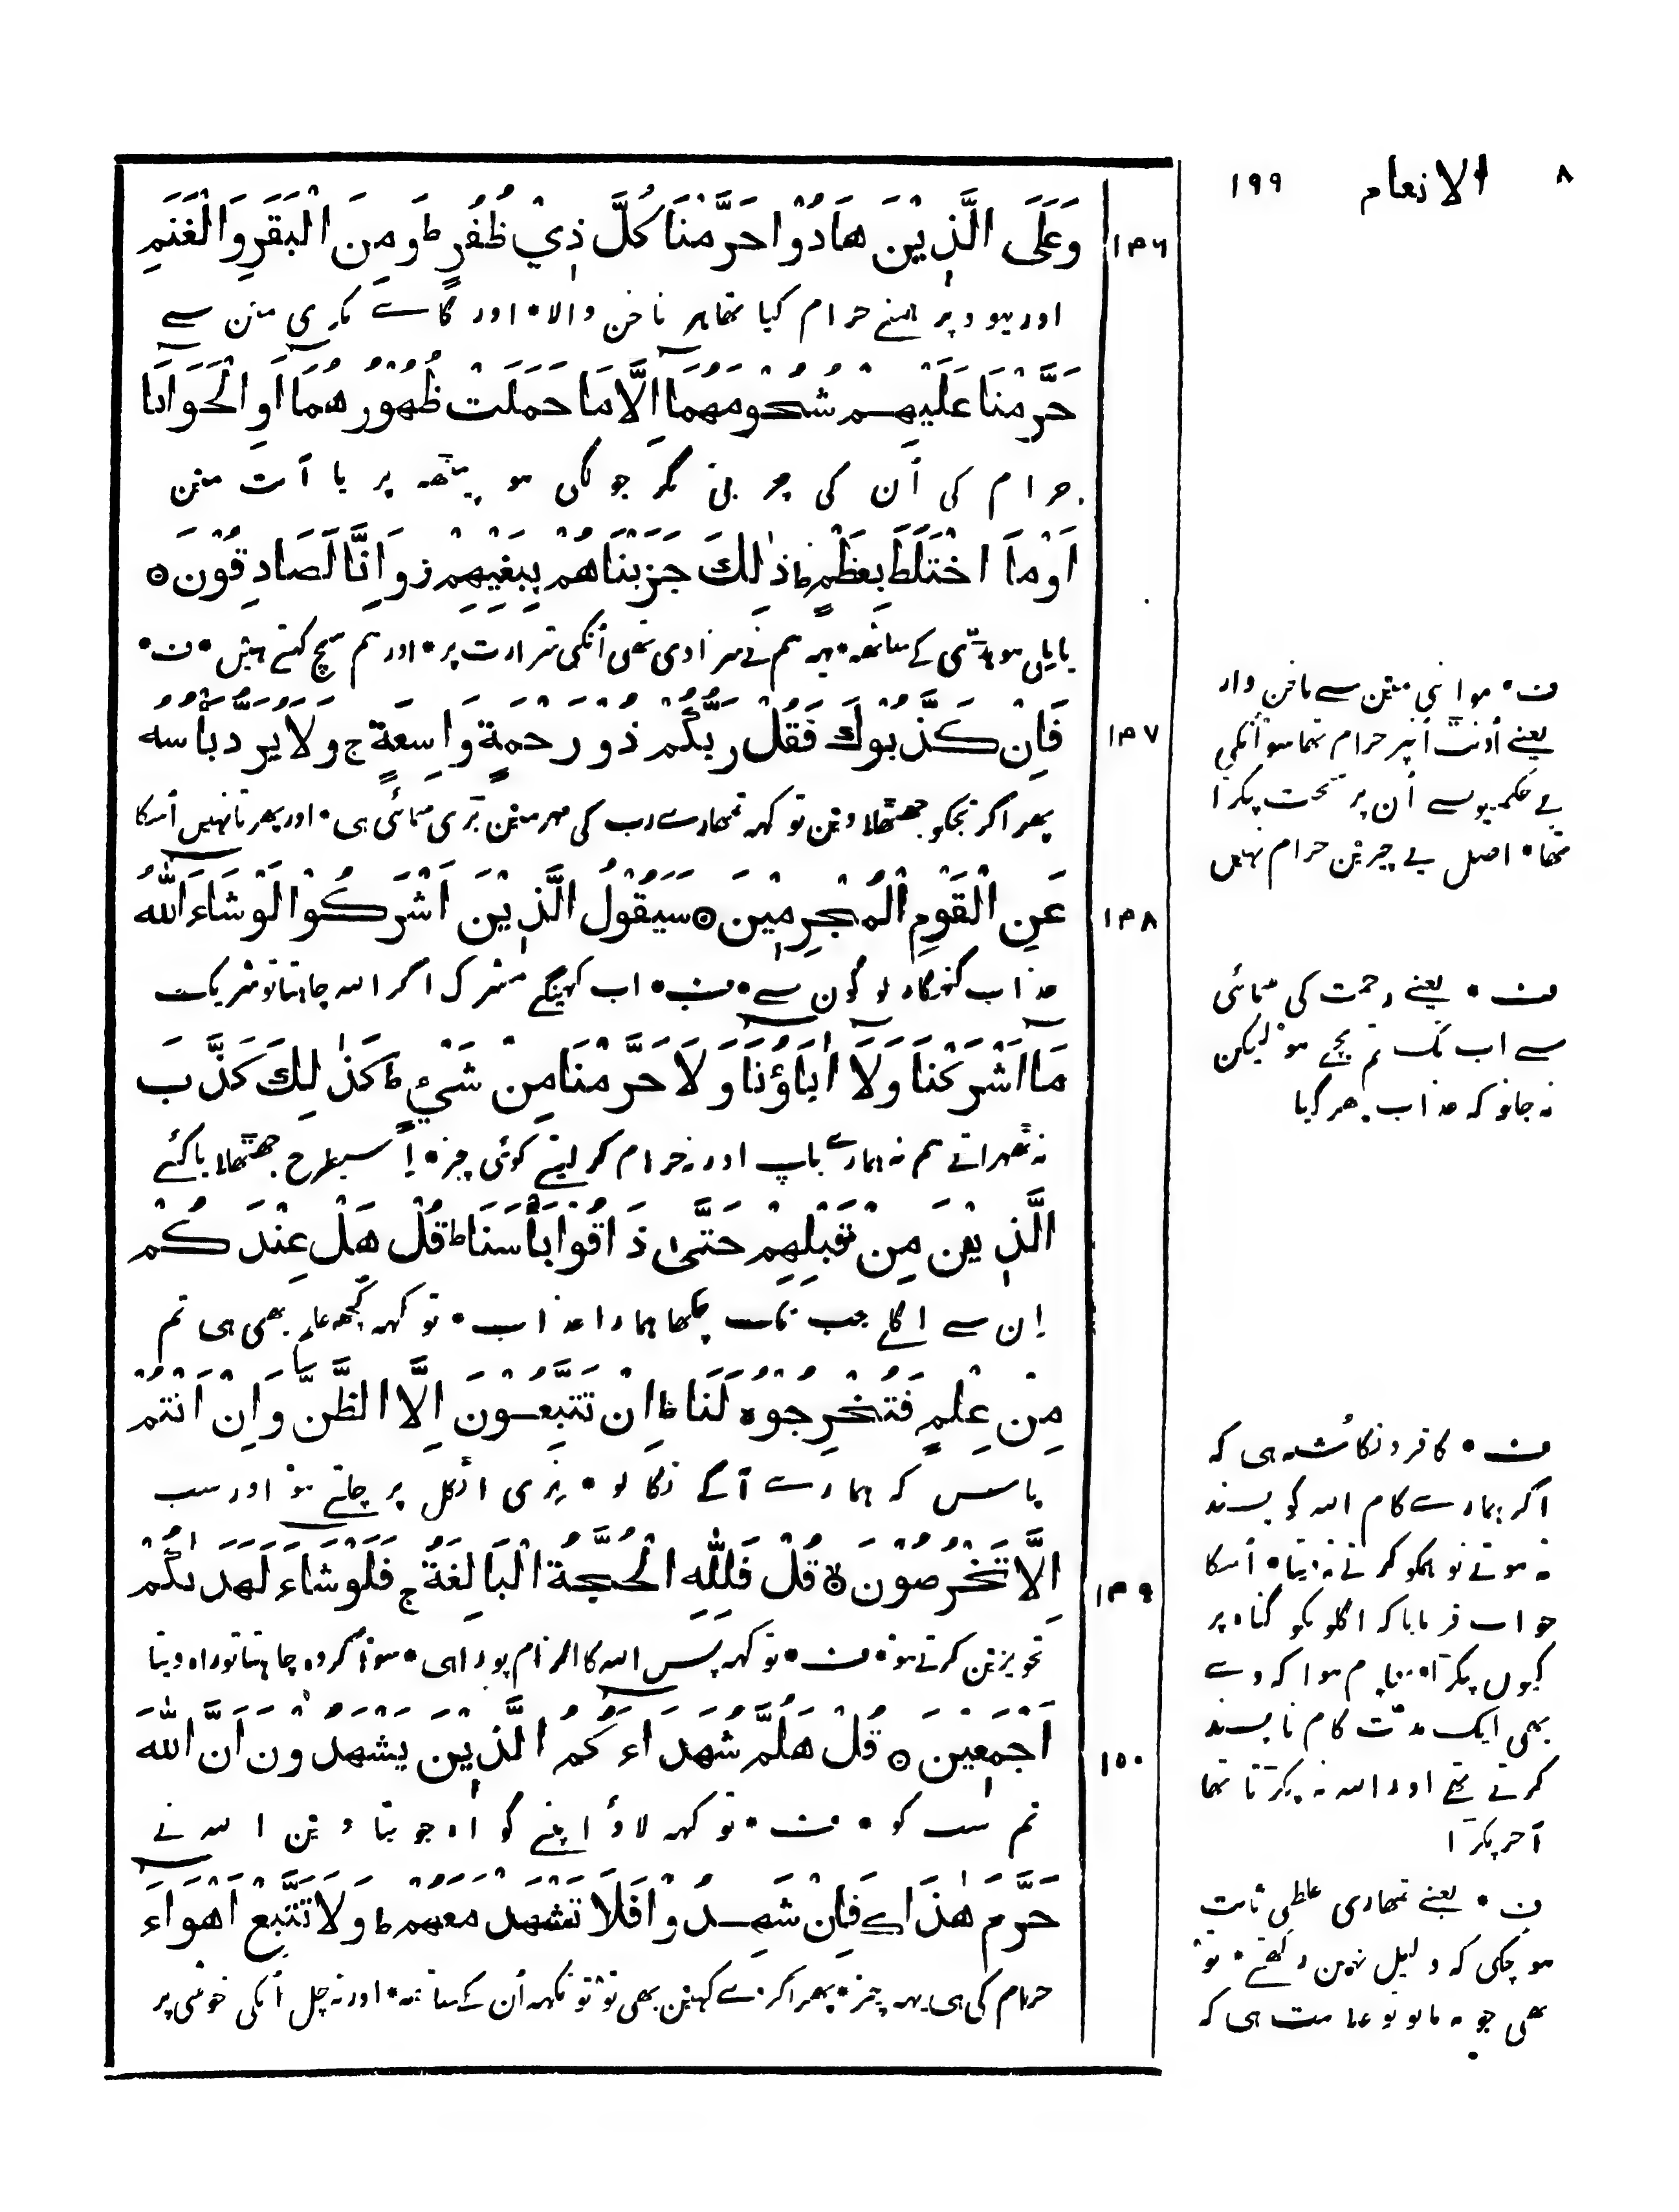 ٨ الانعام ١٩٩
وَعَلَى الَّذِيْنَ هَادُوْا حَرَّمْنَا كُلَّ ذِيْ ظُفُرٍ ط وَمِنَ الْبَقَرِ وَالْغَنَمِ
١٤٦
اور یہود پر ہمنے حرام کیا تھا ہر ناخن والا • اور گاے بکری مین سے
حَرَّمْنَا عَلَيْهِمْ شُحُوْمَهُمَا اِلَّا مَا حَمَلَتْ ظُهُوْرُهُمَا اَوِ الْحَوَايَا
حرام کی اُن کی چربی مگر جو لگی ہو پیٹھہ پر یا آنت مین
اَوْ مَا اخْتَلَطَ بِعَظْمٍ ط ذٰلِكَ جَزَيْنَاهُمْ بِبَغْيِهِمْ ز وَاِنَّا لَصَادِقُوْنَ ○
یا ملی ہو ہڈّی کے ساتھہ • یہہ ہم نے سزا دی تھی اُنکی شرارت پر • اور ہم سچ کہتے ہیں • ف •
فَاِنْ كَذَّبُوْكَ فَقُلْ رَبُّكُمْ ذُوْ رَحْمَةٍ وَاسِعَةٍ ج وَلَا يُرَدُّ بَأْسُهُ
١٤٧
پھر اگر تجکو جھٹھلا وین تو کہہ تمھارے رب کی مہر مین بڑی سمائی ہی • اور پھرتا نہیں اُسکا
عَنِ الْقَوْمِ الْمُجْرِمِيْنَ ○ سَيَقُوْلُ الَّذِيْنَ اَشْرَكُوْا لَوْ شَاءَ اللّٰهُ
١٤٨
عذاب گنہگار لوگون سے • ف • اب کہینگے مشرک اگر اللہ چاہتا تو شریک
مَا اَشْرَكْنَا وَلَا اٰبَاؤُنَا وَلَا حَرَّمْنَا مِنْ شَيْءٍ ط كَذٰلِكَ كَذَّبَ
نہ ٹھہراتے ہم نہ ہمارے باپ اور نہ حرام کر لیتے کوئی چیز • اِسیطرح جھٹھلایا کئے
الَّذِيْنَ مِنْ قَبْلِهِمْ حَتّٰى ذَاقُوْا بَأْسَنَا ط قُلْ هَلْ عِنْدَكُمْ
اِن سے اگلے جب تک چکھا ہمارا عذاب • تو کہہ کچھہ علم بھی ہی تم
مِنْ عِلْمٍ فَتُخْرِجُوْهُ لَنَا ط اِنْ تَتَّبِعُوْنَ اِلَّا الظَّنَّ وَاِنْ اَنْتُمْ
پاس کہ ہمارے آگے نکالو • نِری اٹکل پر چلتے ہو اور سب
اِلَّا تَخْرُصُوْنَ ○ قُلْ فَلِلّٰهِ الْحُجَّةُ الْبَالِغَةُ ج فَلَوْ شَاءَ لَهَدٰىكُمْ
١٤٩
تجویزین کرتے ہو • ف • تو کہہ پس اللہ کا الزام پورا ہی • سو اگر وہ چاہتا تو راہ دیتا
اَجْمَعِيْنَ ○ قُلْ هَلُمَّ شُهَدَاءَكُمُ الَّذِيْنَ يَشْهَدُوْنَ اَنَّ اللّٰهَ
١٥٠
تم سب کو • ف • تو کہہ لاؤ اپنے گواہ جو بتا وین اللہ نے
حَرَّمَ هٰذَا ے فَاِنْ شَهِدُوْا فَلَا تَشْهَدْ مَعَهُمْ ط وَلَا تَتَّبِعْ اَهْوَاءَ
حرام کی ہی یہہ چیز • پھر اگر وے کہین بھی تو تو نکہہ اُن کے ساتھہ • اور نہ چل اُنکی خوشی پر
ف • مواشی مین سے ناخن دار
یعنے اُونٹ اُنپر حرام تھا سو اُنکی
بے حکمیو سے اُن پر سخت پکڑا
تھا • اصل یے چیزین حرام نہیں
ف • یعنے رحمت کی سمائی
سے اب تک تم بچے ہو لیکن
نہ جانو کہ عذاب پھر گیا
ف • کافرونکا شبہ ہی کہ
اگر ہمارے کام اللہ کو پسند
نہ ہوتے تو ہمکو کرنے نہ دیتا • اُسکا
جواب فرمایا کہ اگلو نکو گناہ پر
کیوں پکڑا معلوم ہوا کہ وے
بھی ایک مدّت کام ناپسند
کرتے تھے اور اللہ نہ پکڑتا تھا
آخر پکڑا
ف • یعنے تمھاری غلطی ثابت
ہو چکی کہ دلیل نہین رکھتے • تو
بھی جو نہ مانو تو علامت ہی کہ